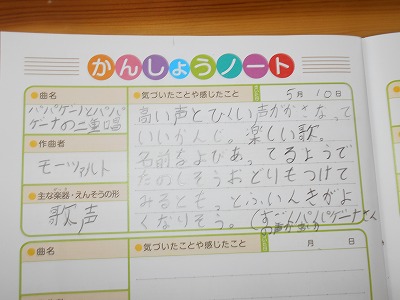 かんしょうノート
●曲名
パパゲーノとパパ
ゲーナの二重唱
●作曲者
モーツァルト
●主な楽器・えんそうの形
歌声
●気づいたことや感じたこと
5月10日
高い声とひくい声がかさなって
いいかんじ。楽しい歌。
名前をよびあってるようで
たのしそうおどりもつけて
みるともっとふいんきがよ
くなりそう。
●曲名
●気づいたことや感じたこと
月 日